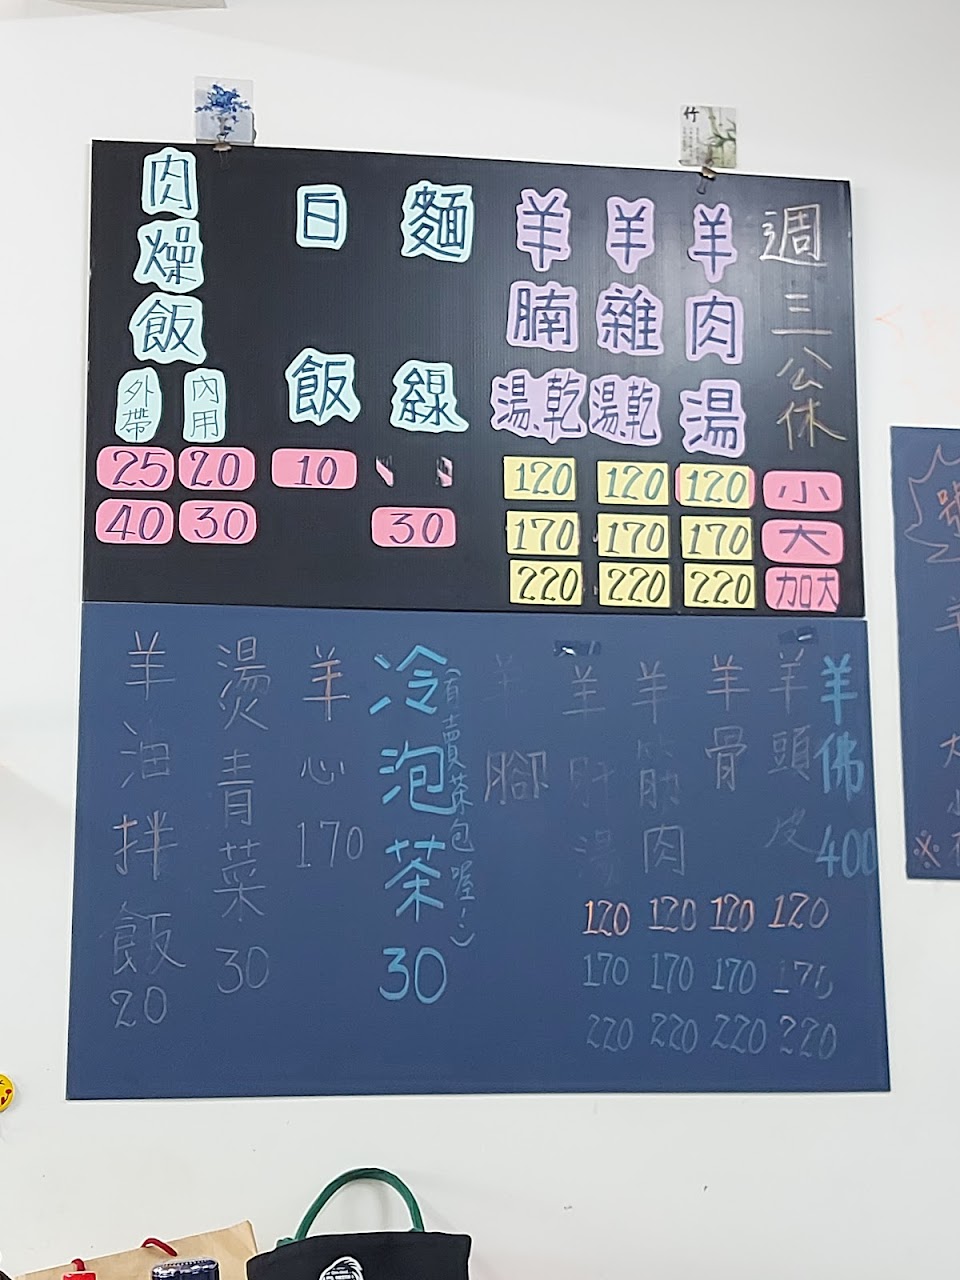 竹
週三公休
小
大
加大
羊肉湯
120
170
220
羊雜湯、乾
120
170
220
羊腩湯、乾
120
170
220
麵線
30
白飯
10
肉燥飯
內用
20
30
外帶
25
40
羊佛400
羊頭皮
120
170
220
羊骨
120
170
220
羊筋肉
120
170
220
羊肝湯
120
170
220
羊腳
冷泡茶30
(有賣茶包喔!)
羊心170
燙青菜30
羊油拌飯20